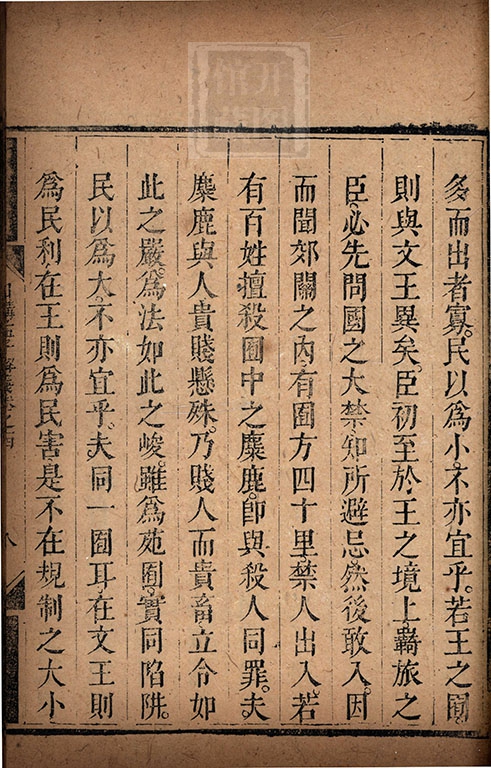 多而出者寡。民以爲小。不亦宜乎。若王之囿。
則與文王異矣。臣初至於王之境上。羇旅之
臣。必先問國之大禁。知所避忌。然後敢入。因
而聞郊關之內。有囿方四十里。禁人出入。若
有百姓擅殺囿中之麋鹿。卽與殺人同罪。夫
麋鹿與人貴賤懸殊。乃賤人而貴畜。立令如
此之嚴。爲法如此之峻。雖爲苑囿。實同陷阱。
民以爲大。不亦宜乎。夫同一囿耳。在文王則
爲民利。在王則爲民害。是不在規制之大小
日講四書解義卷之
八